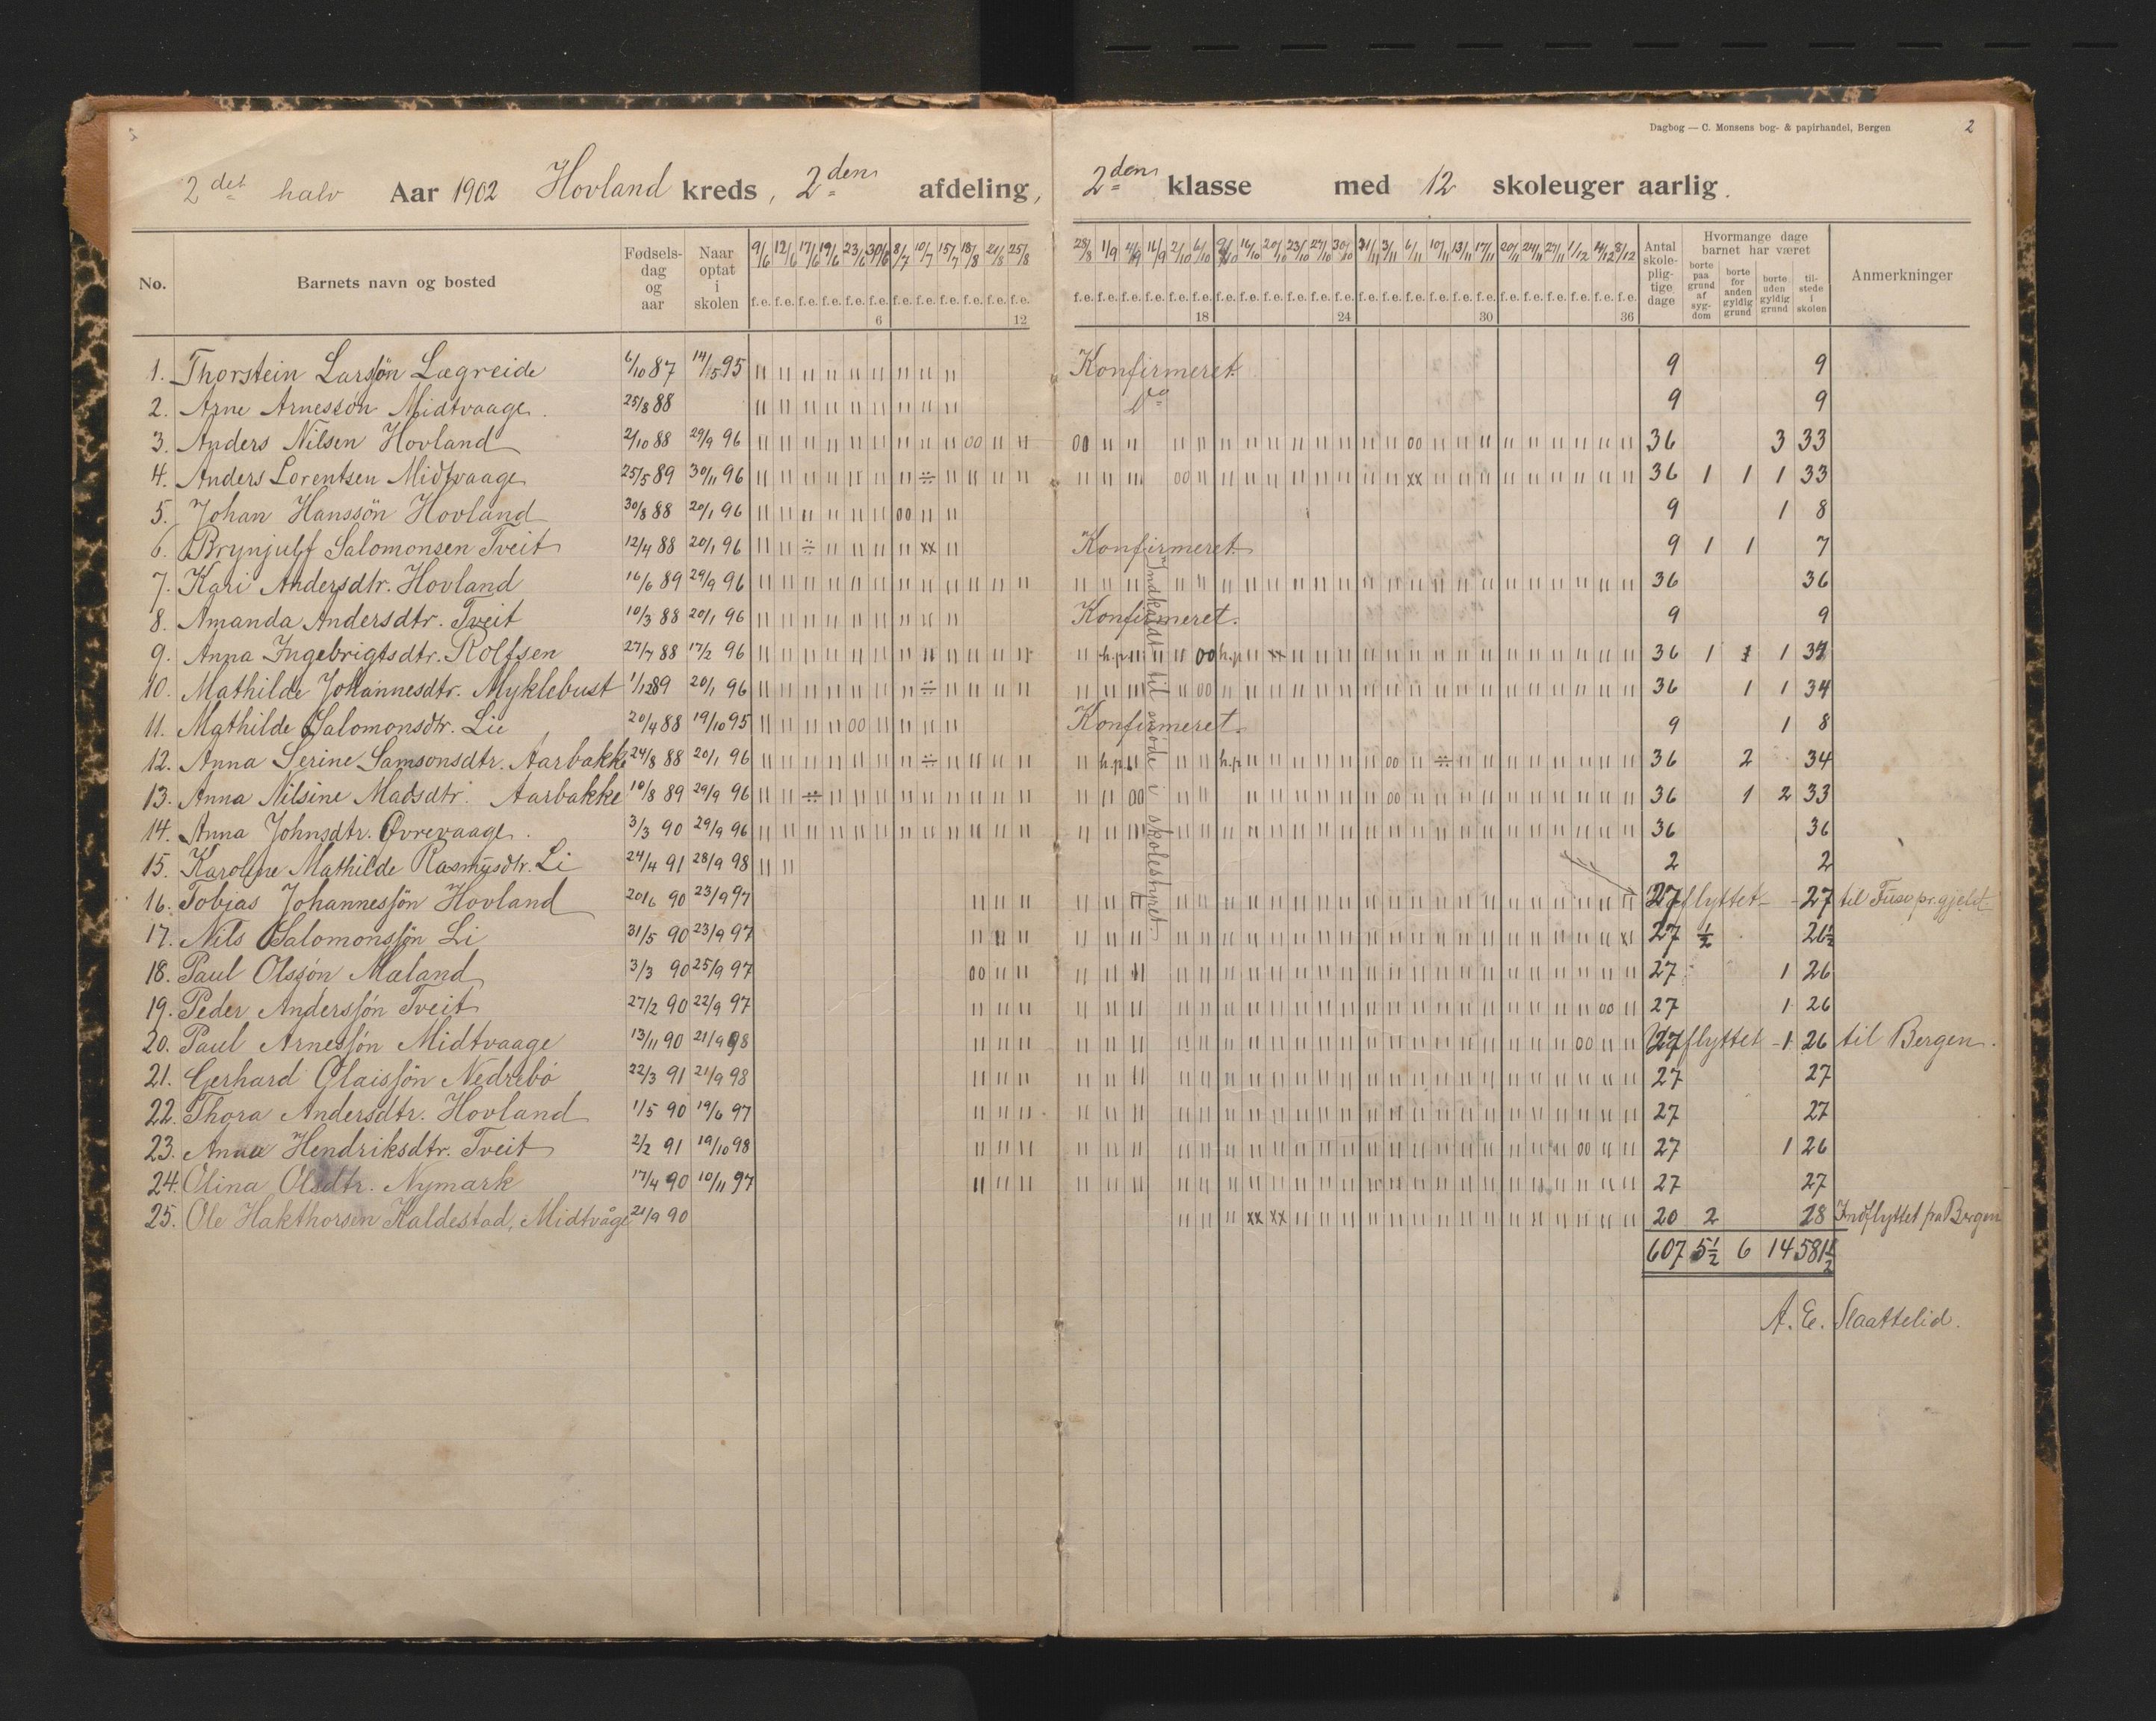 Dagbog — C. Monsens bog- & papirhandel, Bergen 2
2det halv Aar 1902 Hovland kreds, 2den afdeling, 2den klasse med 12 skoleuger aarlig.
No. Barnets navn og bosted Fødselsdag og aar Naar optat i skolen 9/6 12/6 17/6 19/6 23/6 30/6 8/7 10/7 15/7 18/8 21/8 25/8 28/8 1/9 4/9 16/9 2/10 6/10 9/10 16/10 20/10 23/10 27/10 30/10 3/11 6/11 10/11 13/11 17/11 20/11 24/11 27/11 1/12 4/12 8/12 Antal skolepligtige dage Hvormange dage barnet har været borte paa grund af sygdom borte for anden gyldig grund borte uden gyldig grund tilstede i skolen Anmerkninger
f.e. f.e. f.e. f.e. f.e. f.e. f.e. f.e. f.e. f.e. f.e. f.e. f.e. f.e. f.e. f.e. f.e. f.e. f.e. f.e. f.e. f.e. f.e. f.e. f.e. f.e. f.e. f.e. f.e. f.e. f.e. f.e. f.e. f.e. f.e. f.e.
6 12 18 24 30 36
1. Thorstein Larssön Lægreide 6/10 87 14/5 95 Konfirmeret. 9 9
2. Arne Arnessön Midtvaage. 25/8 88 Do 9 9
3. Anders Nilsen Hovland 2/10 88 29/9 96 36 3 33
4. Anders Lorentsen Midtvaage 25/5 89 30/11 96 36 1 1 1 33
5. Johan Hanssön Hovland 30/8 88 20/1 96 9 1 8
6. Brynjulf Salomonsen Tveit 12/4 88 20/1 96 Konfirmeret. 9 1 1 7
7. Kari Andersdtr. Hovland 16/6 89 29/9 96 36 36
8. Amanda Andersdtr. Tveit 10/3 88 20/1 96 Konfirmeret. 9 9
9. Anna Ingebrigtsdtr. Rolfsen 27/7 88 17/2 96 h.p. h.p. 36 1 1 1
10. Mathilde Johannesdtr. Myklebust 1/12 89 20/1 96 36 1 1 34
11. Mathilde Salomonsdtr. Lie 20/4 88 19/10 95 Konfirmeret. 9 1 8
12. Anna Serine Samsonsdtr. Aarbakke 24/8 88 20/1 96 h.p. h.p. 36 2 34
13. Anna Nilsine Madsdtr. Aarbakke 10/8 89 29/9 96 36 1 2 33
14. Anna Johnsdtr. Övrevaage. 3/3 90 29/9 96 36 36
15. Karoline Mathilde Rasmusdtr. Li 24/4 91 28/9 98 2 2
16. Tobias Johannessön Hovland 20/6 90 23/9 97 27 flyttet 27 til Fuse pr.gjeld
17. Nils Salomonssön Li 31/5 90 23/9 97 27 1/2 26 1/2
18. Paul Olssön Mæland 3/3 90 25/9 97 27 1 26
19. Peder Anderssön Tveit 27/2 90 22/9 97 27 1 26
20. Paul Arnessön Midtvaage 13/11 90 21/9 98 27 flyttet 1 26 til Bergen.
21. Gerhard Olaissön Nedrebö 22/3 91 21/9 98 27 27
22. Thora Andersdtr. Hovland 1/5 90 19/6 97 27 27
23. Anna Hendriksdtr. Tveit 2/2 91 19/10 98 27 1 26
24. Olina Olsdtr. Nymark 17/4 90 10/11 97 27 27
25. Ole Hakthorsen Kaldestad, Midtvåge 21/9 90 20 2 18 Indflyttet fra Bergen
607 5 1/2 6 14 581 1/2
Indkaldt til möde i skolestyret.
A. E. Slaattelid.